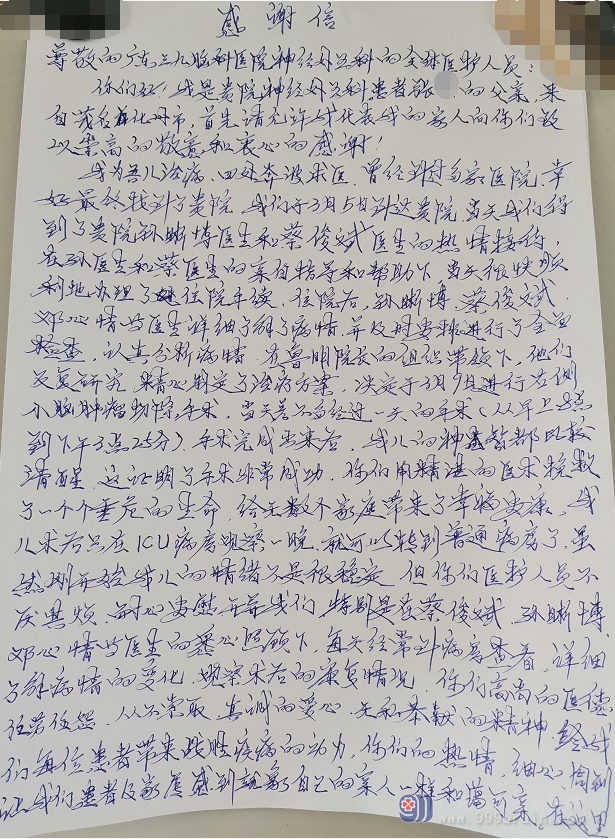 感谢信
尊敬的广东三九脑科医院神经外三科的全体医护人员：
你们好！我是贵院神经外三科患者张 的父亲，来
自茂名化州市，首先请允许我代表我的家人向你们致
以崇高的敬意和衷心的感谢！
我为吾儿治病，四处奔波求医，曾经到过多家医院，幸
好最终找到了贵院，我们于3月5日到达贵院，当天我们得
到了贵院孙晰博医生和蔡俊斌医生的热情接待，
在孙医生和蔡医生的亲自指导和帮助下，当天很快顺
利地办理了住院手续，住院后，孙晰博、蔡俊斌、
邓心情等医生详细了解了病情，并及时安排进行了全面
检查，认真分析病情，在鲁明院长的组织带领下，他们
反复研究，精心制定了治疗方案，决定于3月9日进行左侧
小脑肿瘤切除手术，当天差不多经过一天的手术（从早上8点
到下午3点25分），手术完成出来后，我儿的神志都比较
清醒，这证明了手术非常成功，你们用精湛的医术挽救
了一个个垂危的生命，给无数个家庭带来了幸福安康，我
儿术后只在ICU病房观察一晚，就可以转到普通病房了，虽
然刚开始我儿的情绪不是很稳定，但你们医护人员不
厌其烦，耐心安慰开导我们，特别是在蔡俊斌、孙晰博
邓心情等医生的悉心照顾下，每天经常到病房查看，详细
了解病情的变化，观察术后的康复情况，你们高尚的医德
任劳任怨，从不索取，真诚的爱心，无私奉献的精神，给我
们每位患者带来战胜疾病的动力，你们的热情、细心、周到
让我们患者及家属感到就象自己的亲人一样和蔼可亲，在这里